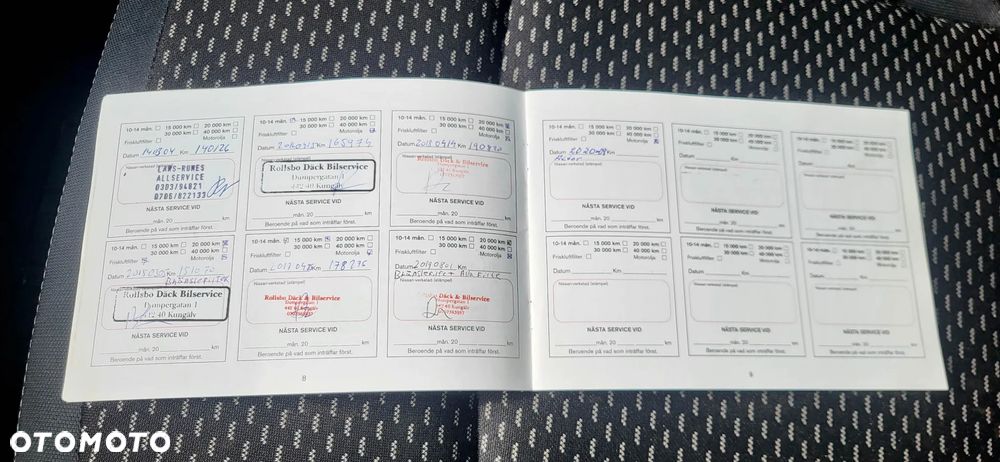 10-14 mån. 15 000 km 20 000 km
30 000 km 40 000 km
Friskluftfilter Motorolja
Datum 140304 Km 140126
Nissan-verkstad (stämpel)
LARS-RUNES
ALLSERVICE
0303/94821
0706/822133
NÄSTA SERVICE VID
mån. 20 km
Beroende på vad som inträffar först.
10-14 mån. 15 000 km 20 000 km
30 000 km 40 000 km
Friskluftfilter Motorolja
Datum Km 165974
Nissan-verkstad (stämpel)
Rollsbo Däck Bilservice
Dumpergatan 1
442 40 Kungälv
NÄSTA SERVICE VID
mån. 20 km
Beroende på vad som inträffar först.
10-14 mån. 15 000 km 20 000 km
30 000 km 40 000 km
Friskluftfilter Motorolja
Datum Km
Nissan-verkstad (stämpel)
Rollsbo Däck & Bilservice
Dumpergatan 1
442 40 Kungälv
NÄSTA SERVICE VID
mån. 20 km
Beroende på vad som inträffar först.
10-14 mån. 15 000 km 20 000 km
30 000 km 40 000 km
Friskluftfilter Motorolja
Datum Km
Nissan-verkstad (stämpel)
Rollsbo Däck Bilservice
Dumpergatan 1
442 40 Kungälv
NÄSTA SERVICE VID
mån. 20 km
Beroende på vad som inträffar först.
10-14 mån. 15 000 km 20 000 km
30 000 km 40 000 km
Friskluftfilter Motorolja
Datum Km 178276
Nissan-verkstad (stämpel)
Rollsbo Däck & Bilservice
Dumpergatan 1
442 40 Kungälv
NÄSTA SERVICE VID
mån. 20 km
Beroende på vad som inträffar först.
10-14 mån. 15 000 km 20 000 km
30 000 km 40 000 km
Friskluftfilter Motorolja
Datum 20190801 Km
Nissan-verkstad (stämpel)
Rollsbo Däck & Bilservice
Dumpergatan 1
442 40 Kungälv
NÄSTA SERVICE VID
mån. 20 km
Beroende på vad som inträffar först.
8
10-14 mån. 15 000 km 20 000 km
30 000 km 40 000 km
Friskluftfilter Motorolja
Datum Km
Nissan-verkstad (stämpel)
NÄSTA SERVICE VID
mån. 20 km
Beroende på vad som inträffar först.
10-14 mån. 15 000 km 20 000 km
30 000 km 40 000 km
Friskluftfilter Motorolja
Datum Km
Nissan-verkstad (stämpel)
NÄSTA SERVICE VID
mån. 20 km
Beroende på vad som inträffar först.
10-14 mån. 15 000 km 20 000 km
30 000 km 40 000 km
Friskluftfilter Motorolja
Datum Km
Nissan-verkstad (stämpel)
NÄSTA SERVICE VID
mån. 20 km
Beroende på vad som inträffar först.
10-14 mån. 15 000 km 20 000 km
30 000 km 40 000 km
Friskluftfilter Motorolja
Datum Km
Nissan-verkstad (stämpel)
NÄSTA SERVICE VID
mån. 20 km
Beroende på vad som inträffar först.
10-14 mån. 15 000 km 20 000 km
30 000 km 40 000 km
Friskluftfilter Motorolja
Datum Km
Nissan-verkstad (stämpel)
NÄSTA SERVICE VID
mån. 20 km
Beroende på vad som inträffar först.
10-14 mån. 15 000 km 20 000 km
30 000 km 40 000 km
Friskluftfilter Motorolja
Datum Km
Nissan-verkstad (stämpel)
NÄSTA SERVICE VID
mån. 20 km
Beroende på vad som inträffar först.
9
OTOMOTO